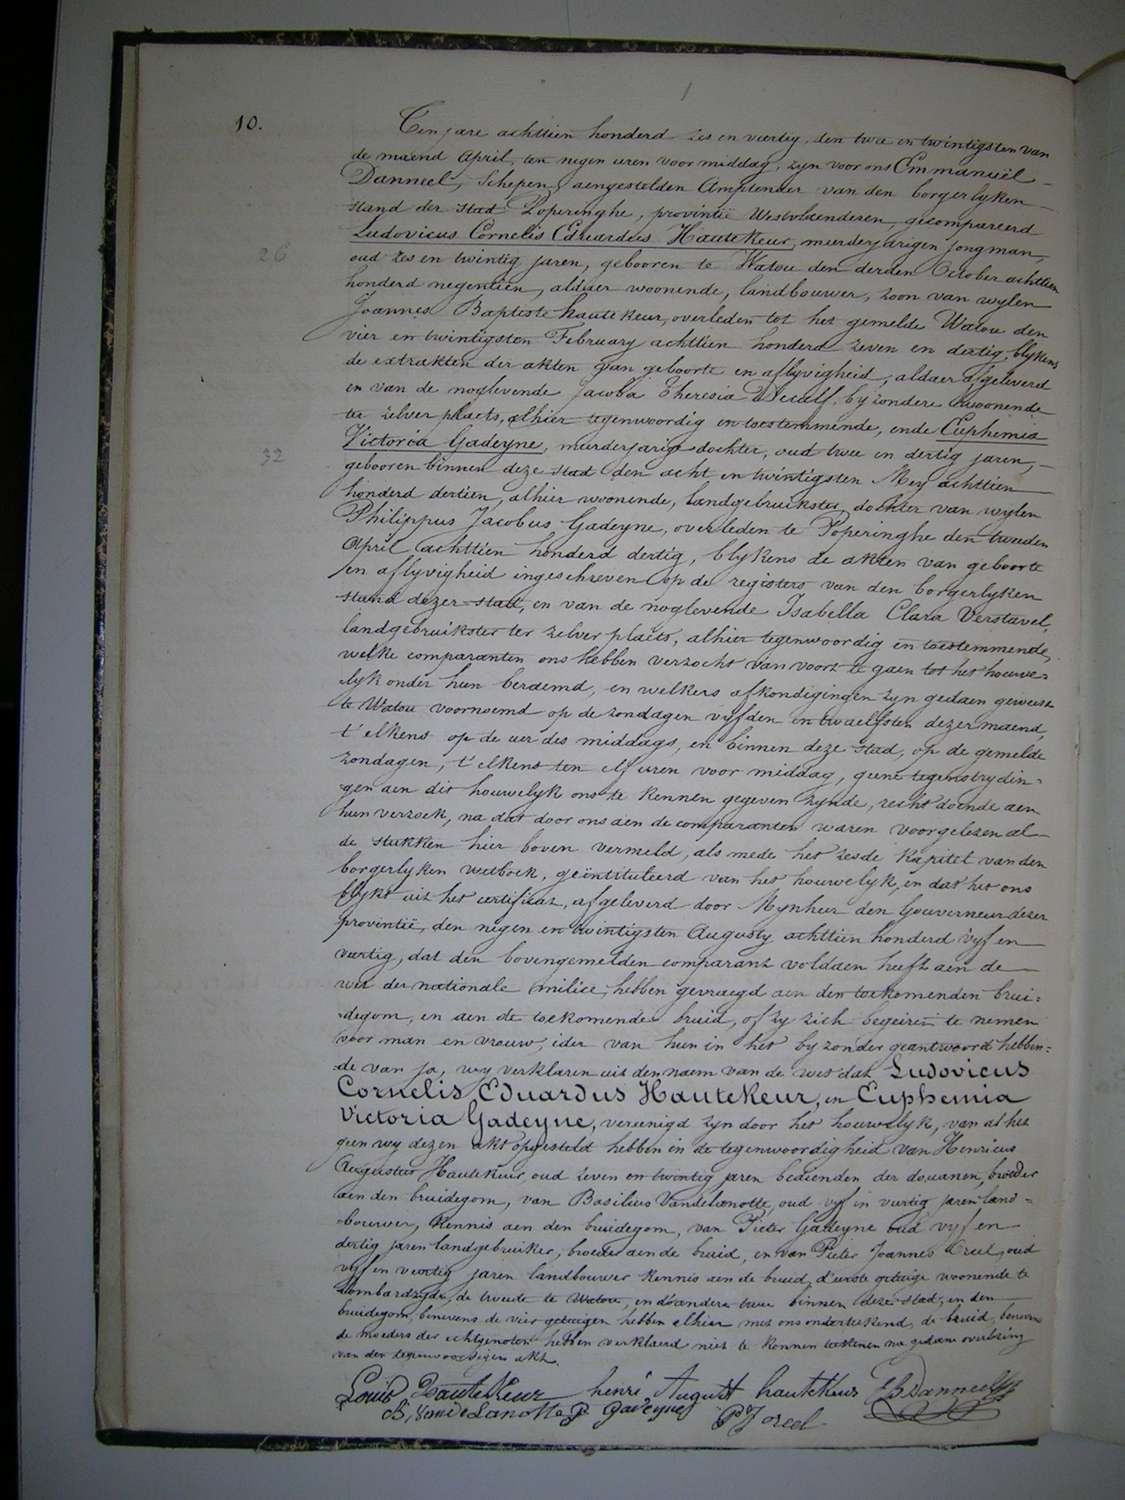 10.
Ten jare achttien honderd zes en veertig, den twee en twintigsten van
de maend April, ten negen uren voor middag, zyn voor ons Emmanuël
Danneel, Schepen, aengestelden Amptenaer van den borgerlyken
stand der stad Poperinghe, provintie Westvlaenderen, gecompareerd
Ludovicus Cornelis Eduardus Hautekeur, meerderjarigen jongman,
26
oud zes en twintig jaren, gebooren te Watou den derden October achttien
honderd negentien, aldaer woonende, landbouwer, zoon van wylen
Joannes Baptiste Hautekeur, overleden tot het gemelde Watou den
vier en twintigsten February achttien honderd zeven en dertig, blykens
de extrakten der akten van geboorte en aflyvigheid, aldaer afgeleverd
en van de noglevende Jacoba Theresia Decalf, byzondere woonende
ter zelver plaets, alhier tegenwoordig en toestemmende, ende Euphemia
Victoria Gadeyne, meerderjarige dochter, oud twee en dertig jaren,
32
gebooren binnen deze stad den acht en twintigsten Mey achttien
honderd dertien, alhier woonende, landgebruikster, dochter van wylen
Philippus Jacobus Gadeyne, overleden te Poperinghe den tweeden
April achttien honderd dertig, blykens de akten van geboorte
en aflyvigheid ingeschreven op de registers van den borgerlyken
stand dezer stad, en van de noglevende Isabella Clara Verstavel,
landgebruikster ter zelver plaets, alhier tegenwoordig en toestemmende,
welke comparanten ons hebben verzocht van voort te gaen tot het houwe-
lyk onder hun beraemd, en welkers afkondigingen zyn gedaen geweest
te Watou voornoemd op de zondagen vyfden en twaelfsten dezer maend,
t'elkens op de uer des middags, en binnen deze stad, op de gemelde
zondagen, t'elkens ten elf uren voor middag, geene tegenstrydin-
gen aen dit houwelyk ons te kennen gegeven zynde, recht doende aen
hun verzoek, na dat door ons aen de comparanten waren voorgelezen al
de stukken hier boven vermeld, als mede het zesde Kapitel van den
borgerlyken wetboek, geïntituleerd van het houwelyk, en dat het ons
blykt uit het certificat, afgeleverd door Mynheer den Gouverneur dezer
provintie, den negen en twintigsten Augusty achttien honderd vyf en
veertig, dat den bovengemelden comparant voldaen heeft aen de
wet der nationale milice, hebben gevraegd aen den toekomenden brui-
degom, en aen de toekomende bruid, of zy zich begeiren te nemen
voor man en vrouw, ider van hun in het byzonder geantwoord hebben-
de van ja, wy verklaren uit den naem van de wet dat Ludovicus
Cornelis Eduardus Hautekeur, en Euphemia
Victoria Gadeyne, vereenigd zyn door het houwelyk, van al het
geen wy dezen akt opgesteld hebben in de tegenwoordigheid van Henricus
Augustus Hautekeur, oud zeven en twintig jaren bedienden der douanen, broeder
aen den bruidegom, van Basilius Vandelanotte, oud vyf en veertig jaren land-
bouwer, kennis aen den bruidegom, van Pieter Gadeyne oud vyf en
dertig jaren landgebruiker, broeder aen de bruid, en van Pieter Joannes Oreel, oud
vyf en veertig jaren landbouwer kennis aen de bruid, d'eerste getuige woonende te
Lombardzyde, de tweede te Watou, en d'andere twee binnen deze stad, en den
bruidegom, benevens de vier getuigen hebben alhier met ons onderteekend, de bruid, benevens
de moeders der echtgenoten hebben verklaerd niet te konnen teekenen na gedaen overlezing
van den tegenwoordigen akt.
Louis Hautekeur henri August hautekeur E Danneel
B, Vande Lanotte P Gadeyne PJ oreel